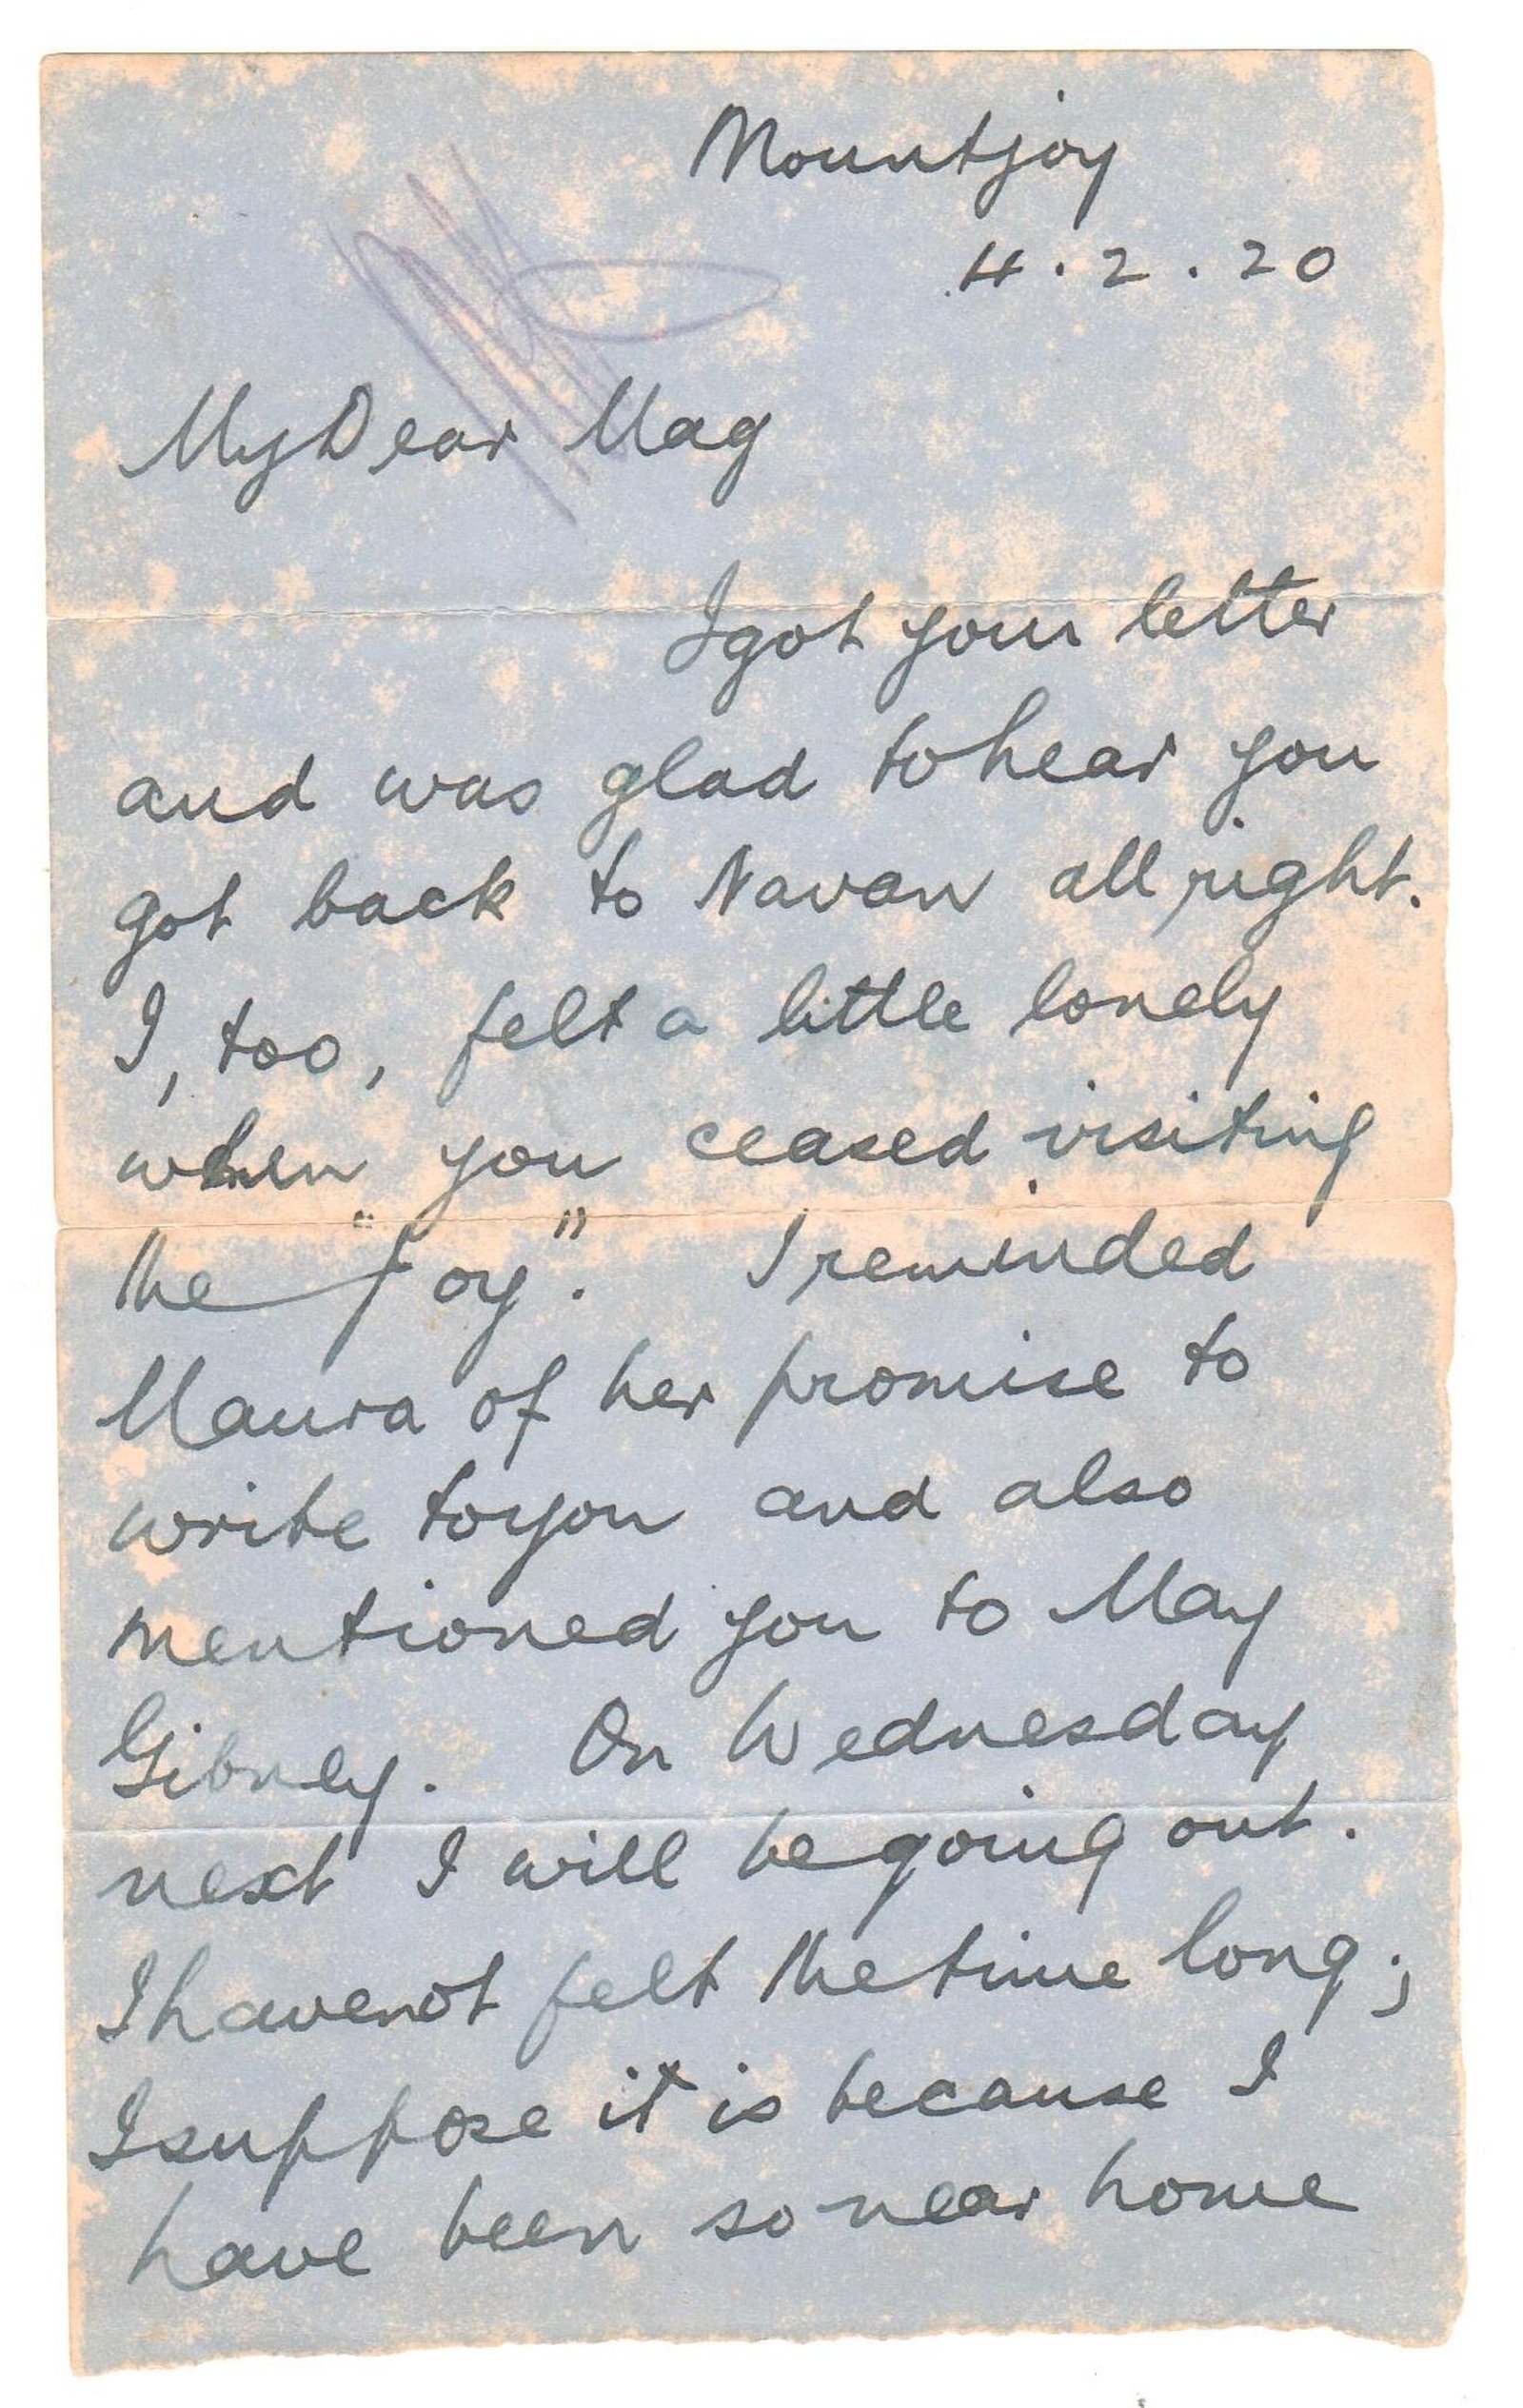 Mountjoy
4.2.20
My Dear Mag
I got your letter
and was glad to hear you
got back to Navan all right.
I, too, felt a little lonely
when you ceased visiting
the "Joy". I reminded
Maura of her promise to
write to you and also
mentioned you to May
Gibney. On Wednesday
next I will be going out.
I have not felt the time long;
I suppose it is because I
have been so near home